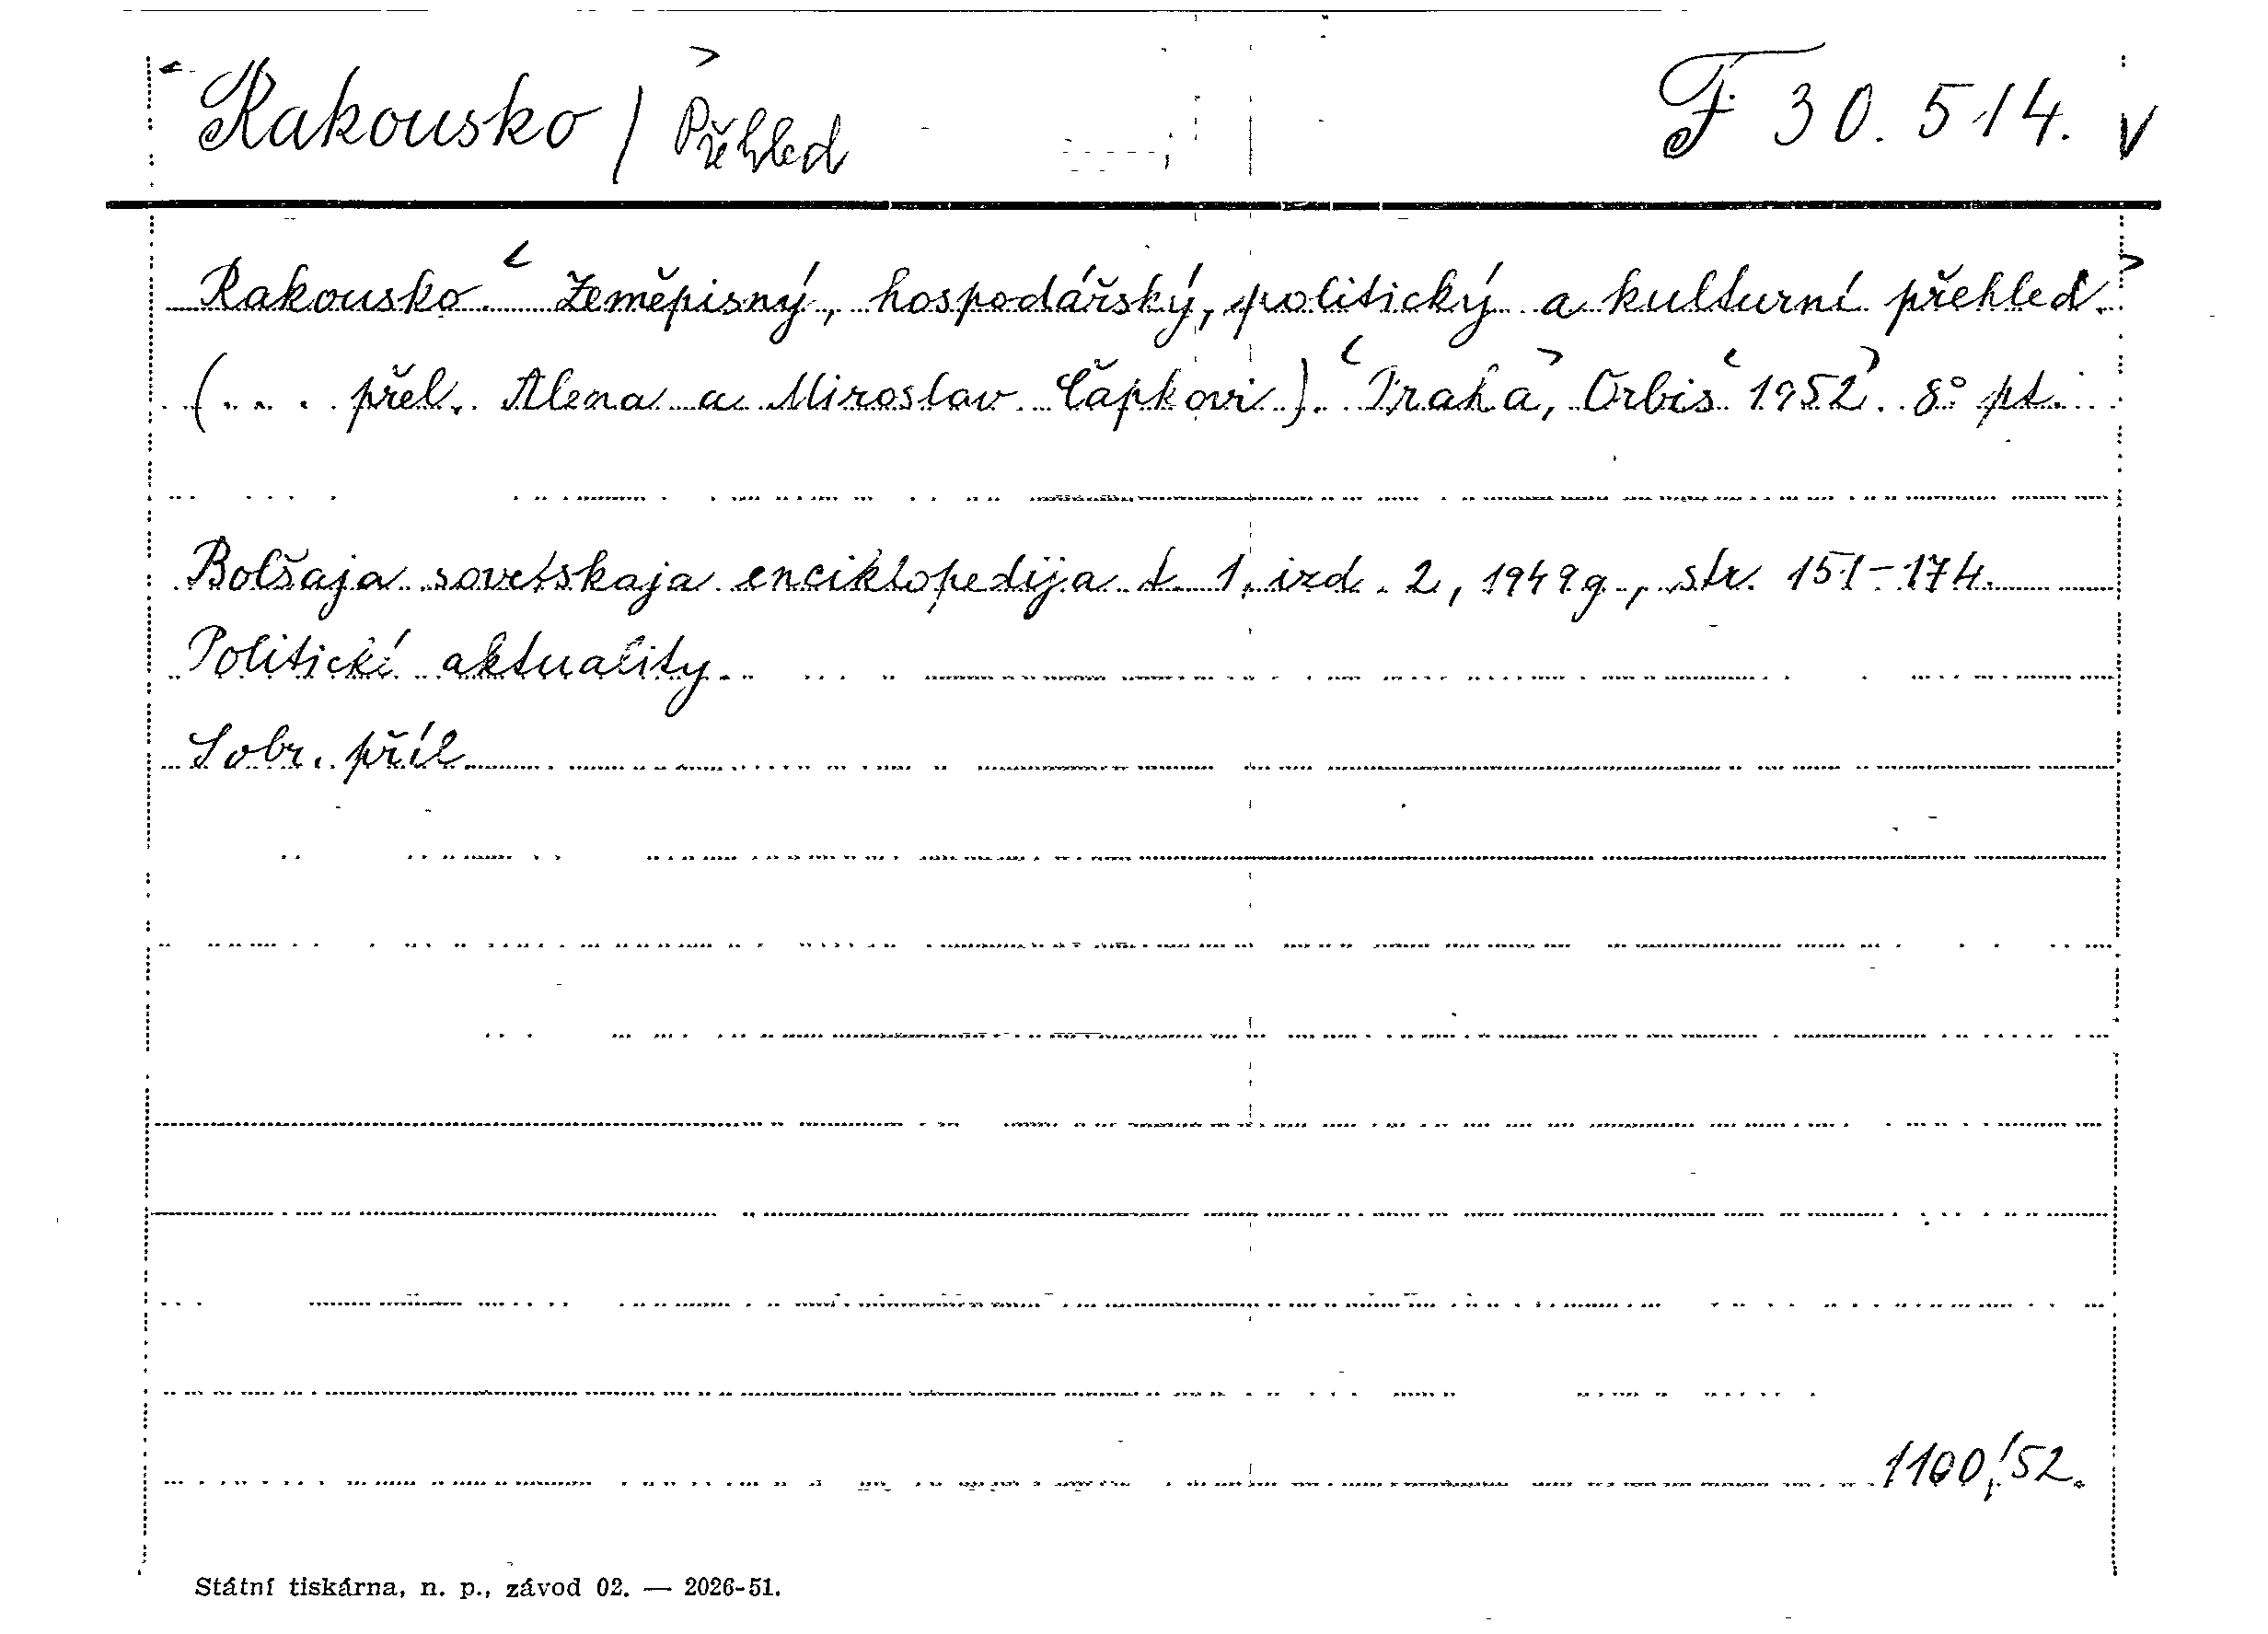 Rakousko / Přehled F 30.514. V
Rakousko. Zeměpisný, hospodářský, politický a kulturní přehled.
(... přel. Alena a Miroslav Čapkovi). Praha, Orbis 1952. 8° pt.
Bolšaja sovetskaja enciklopedija t. 1, izd. 2, 1949 g., str. 151-174.
Politické aktuality.
S obr. příl.
1100/52.
Státní tiskárna, n. p., závod 02. — 2026-51.